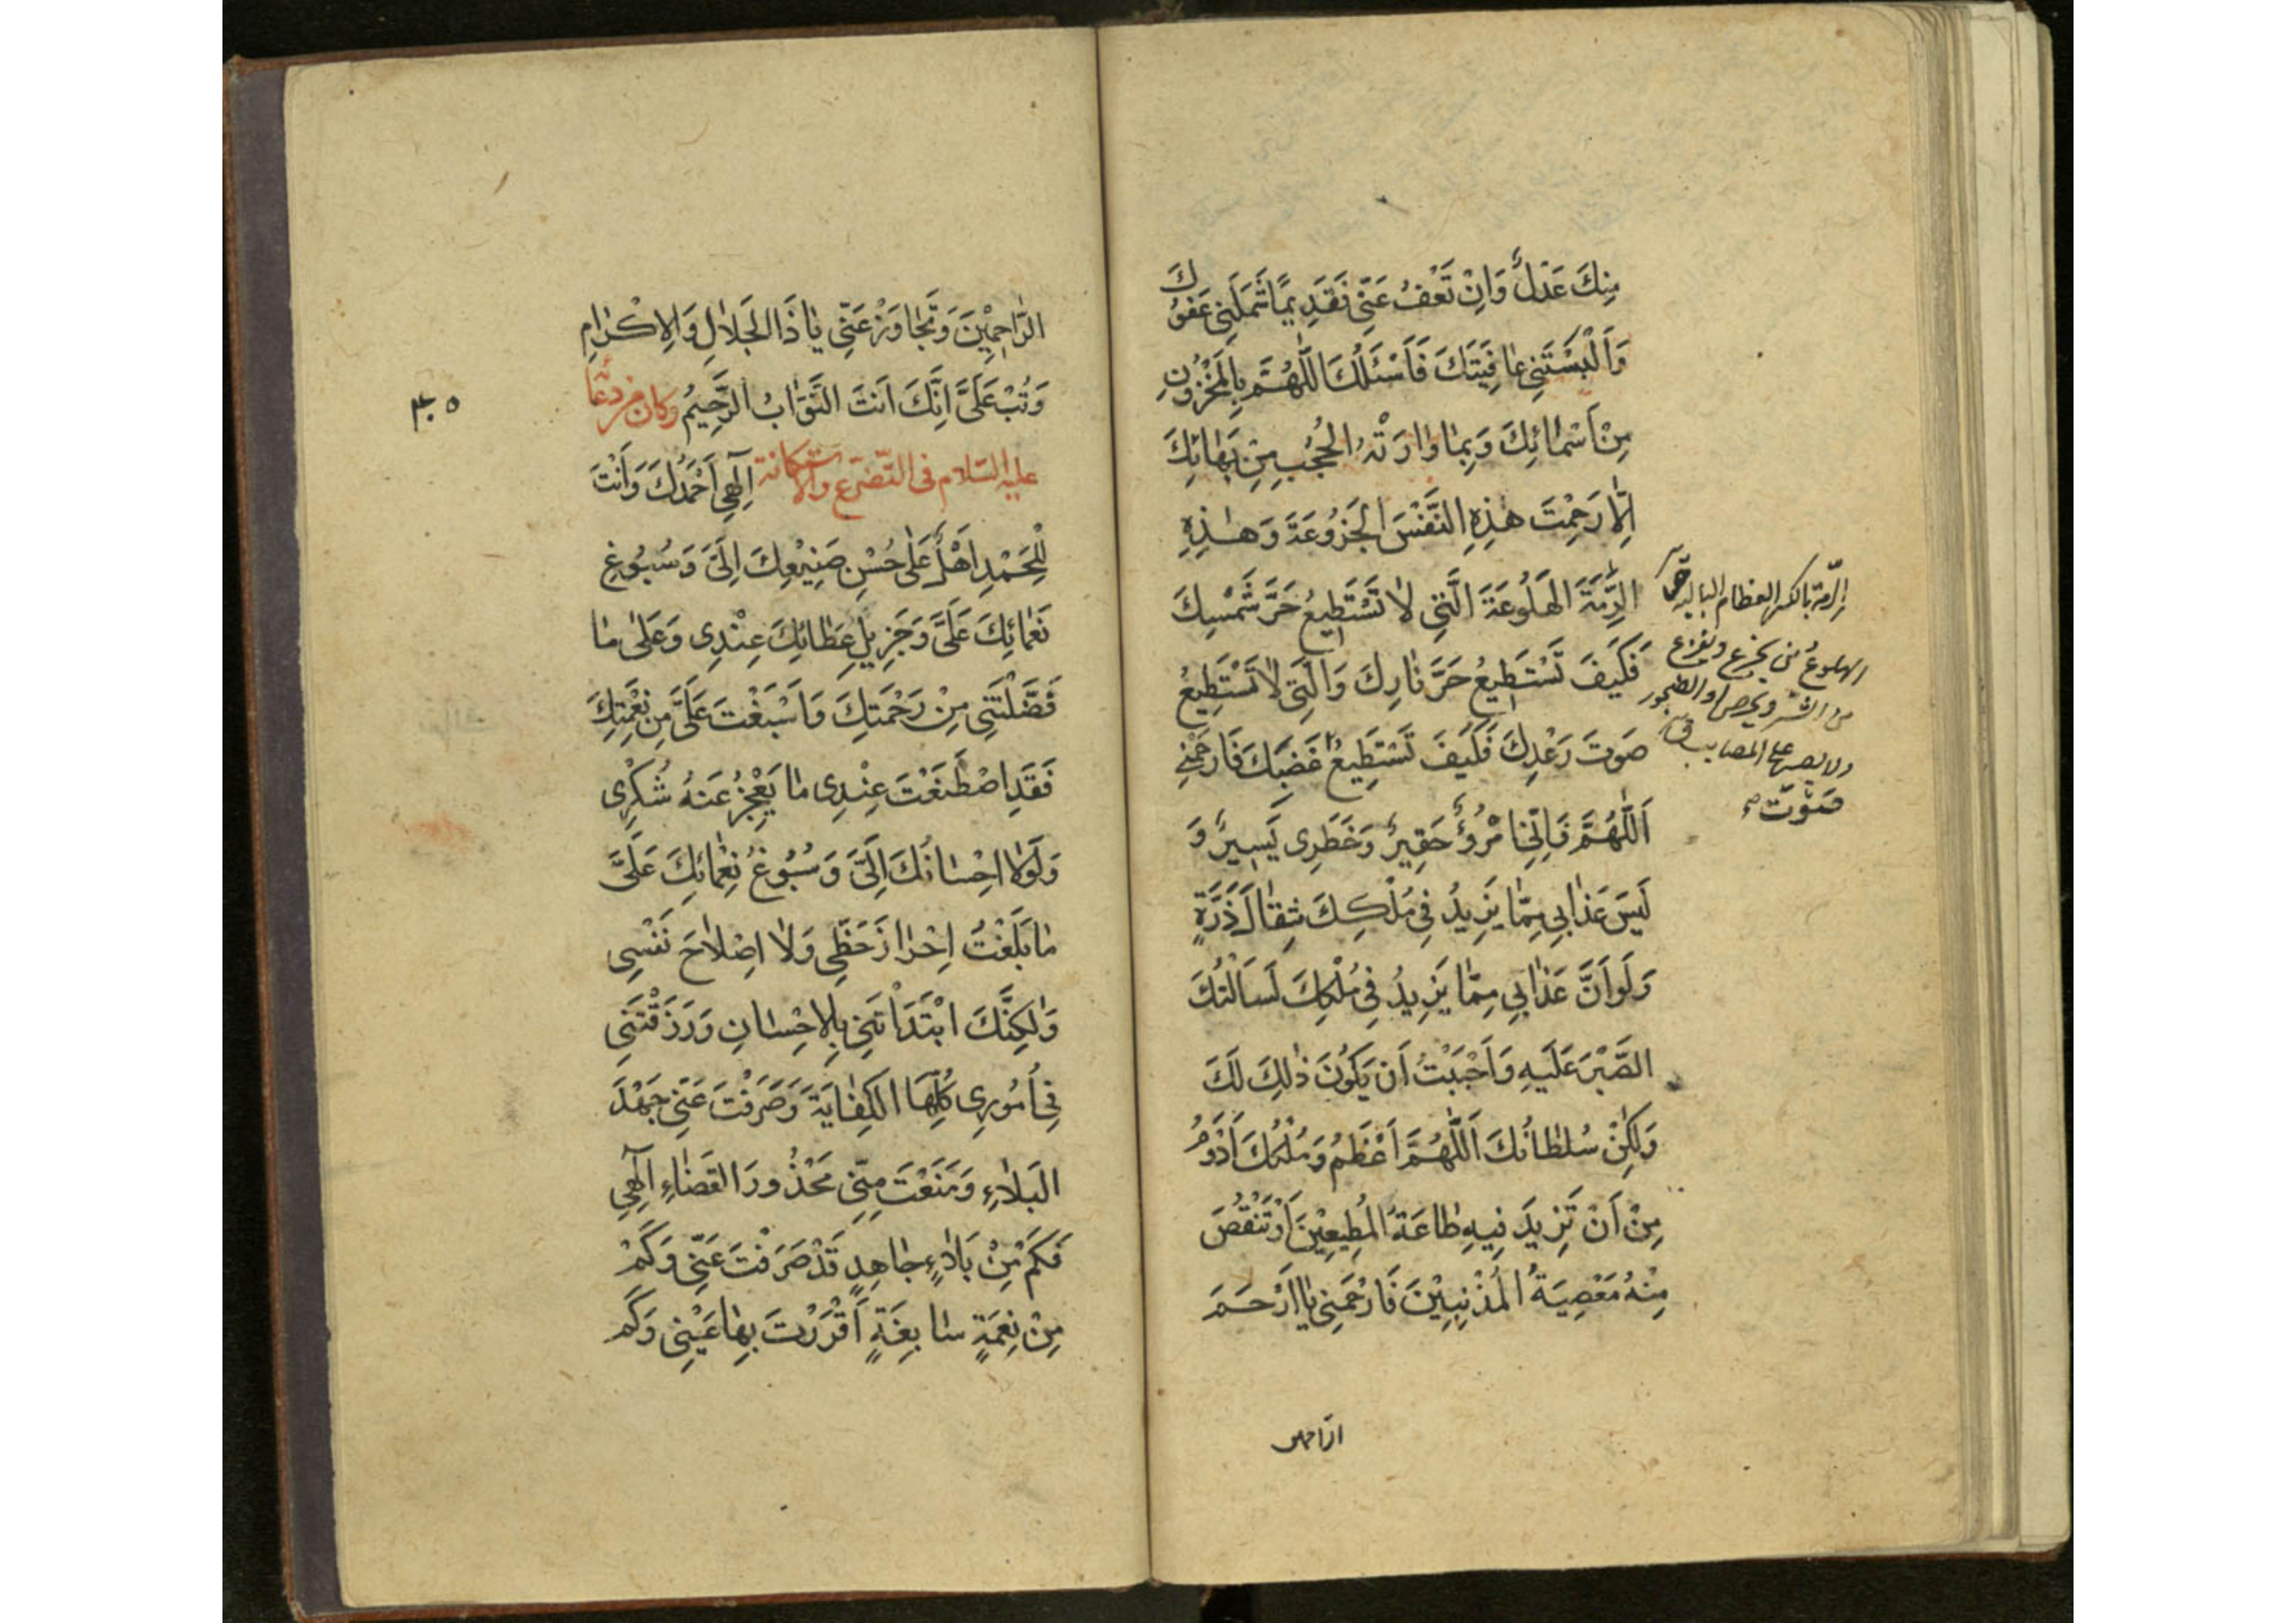 مِنْكَ عَدْلٌ وَاِنْ تَعْفُ عَنِّي فَقَدِيمًا شَمَلَنِي عَفْوُكَ
وَاَلْبَسْتَنِي عَافِيَتَكَ فَاَسْئَلُكَ اللّٰهُمَّ بِالْمَخْزُونِ
مِنْ اَسْمَائِكَ وَبِمَا وَارَتْهُ الْحُجُبُ مِنْ بَهَائِكَ
اِلَّا رَحِمْتَ هٰذِهِ النَّفْسَ الْجَزُوعَةَ وَهٰذِهِ
الرِّمَّةَ الْهَلُوعَةَ الَّتِي لَا تَسْتَطِيعُ حَرَّ شَمْسِكَ
فَكَيْفَ تَسْتَطِيعُ حَرَّ نَارِكَ وَالَّتِي لَا تَسْتَطِيعُ
صَوْتَ رَعْدِكَ فَكَيْفَ تَسْتَطِيعُ غَضَبَكَ فَارْحَمْنِي
اَللّٰهُمَّ فَاِنِّي امْرُؤٌ حَقِيرٌ وَخَطَرِي يَسِيرٌ وَ
لَيْسَ عَذَابِي مِمَّا يَزِيدُ فِي مُلْكِكَ مِثْقَالَ ذَرَّةٍ
وَلَوْ اَنَّ عَذَابِي مِمَّا يَزِيدُ فِي مُلْكِكَ لَسَاَلْتُكَ
الصَّبْرَ عَلَيْهِ وَاَحْبَبْتُ اَنْ يَكُونَ ذٰلِكَ لَكَ
وَلٰكِنْ سُلْطَانُكَ اَللّٰهُمَّ اَعْظَمُ وَمُلْكُكَ اَدْوَمُ
مِنْ اَنْ تَزِيدَ فِيهِ طَاعَةُ الْمُطِيعِيْنَ اَوْ تَنْقُصَ
مِنْهُ مَعْصِيَةُ الْمُذْنِبِيْنَ فَارْحَمْنِي يَا اَرْحَمَ
الراحمين
الرّمة بالكسر العظام البالية
الهلوع من يجزع ويفزع
من الشر ويحرص
ولا يصبر على المصائب
صَوْتَ
الرَّاحِمِيْنَ وَتَجَاوَزْ عَنِّي يَا ذَا الْجَلَالِ وَالْاِكْرَامِ
وَتُبْ عَلَيَّ اِنَّكَ اَنْتَ التَّوَّابُ الرَّحِيمُ وكان من دعائه
عليه السلام في التضرع والاستكانة اِلٰهِي اَحْمَدُكَ وَاَنْتَ
لِلْحَمْدِ اَهْلٌ عَلٰى حُسْنِ صَنِيْعِكَ اِلَيَّ وَسُبُوغِ
نَعْمَائِكَ عَلَيَّ وَجَزِيلِ عَطَائِكَ عِنْدِي وَعَلٰى مَا
فَضَّلْتَنِي مِنْ رَحْمَتِكَ وَاَسْبَغْتَ عَلَيَّ مِنْ نِعْمَتِكَ
فَقَدِ اصْطَنَعْتَ عِنْدِي مَا يَعْجِزُ عَنْهُ شُكْرِي
وَلَوْلَا اِحْسَانُكَ اِلَيَّ وَسُبُوغُ نَعْمَائِكَ عَلَيَّ
مَا بَلَغْتُ اِحْرَازَ حَظِّي وَلَا اِصْلَاحَ نَفْسِي
وَلٰكِنَّكَ ابْتَدَاْتَنِي بِالْاِحْسَانِ وَرَزَقْتَنِي
فِي اُمُورِي كُلِّهَا الْكِفَايَةَ وَصَرَفْتَ عَنِّي جَهْدَ
الْبَلَاءِ وَمَنَعْتَ مِنِّي مَحْذُورَ الْقَضَاءِ اِلٰهِي
فَكَمْ مِنْ بَلَاءٍ جَاهِدٍ قَدْ صَرَفْتَ عَنِّي وَكَمْ
مِنْ نِعْمَةٍ سَابِغَةٍ اَقْرَرْتَ بِهَا عَيْنِي وَكَمْ